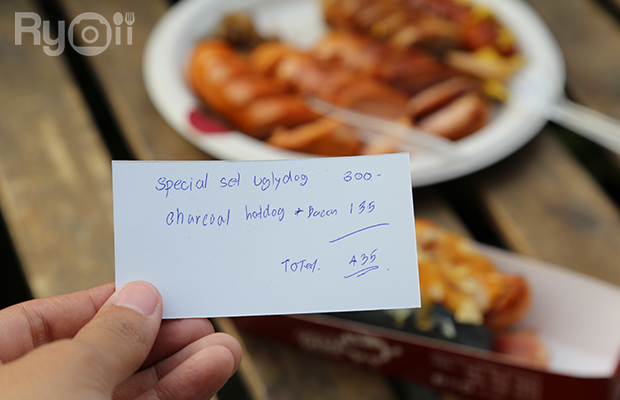 RyOii
Special set uglydog 300-
Charcoal hotdog + Bacon 135
Total. 435